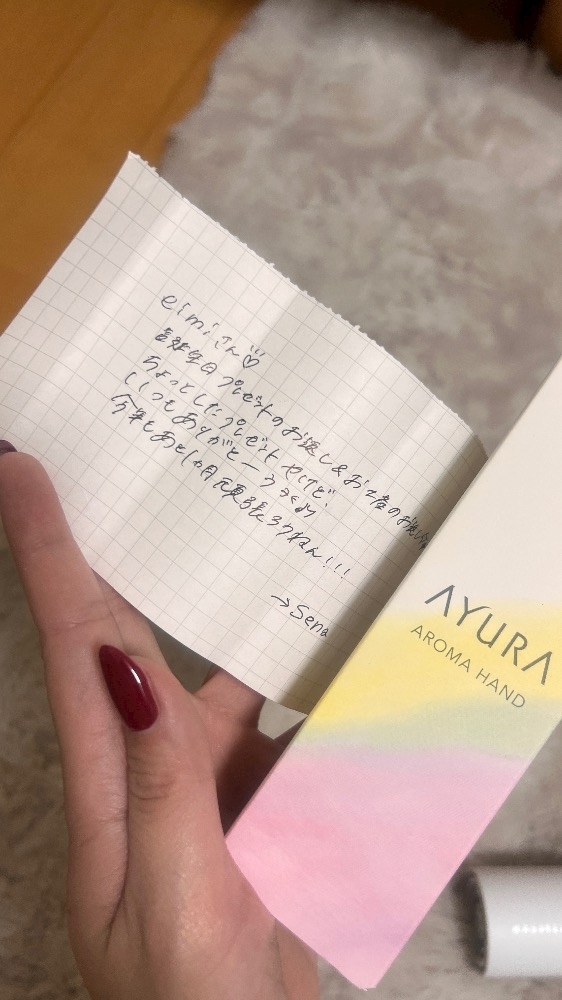 eimiさん♡
お誕生日プレゼントのお返し&お2度のお祝い
ちょっとしたプレゼント だけど!
いつもありがとーうᐢᴗᐢ
今年もあと1ヵ月頑張ろうねん!!!
→Sena
AYURA
AROMA HAND